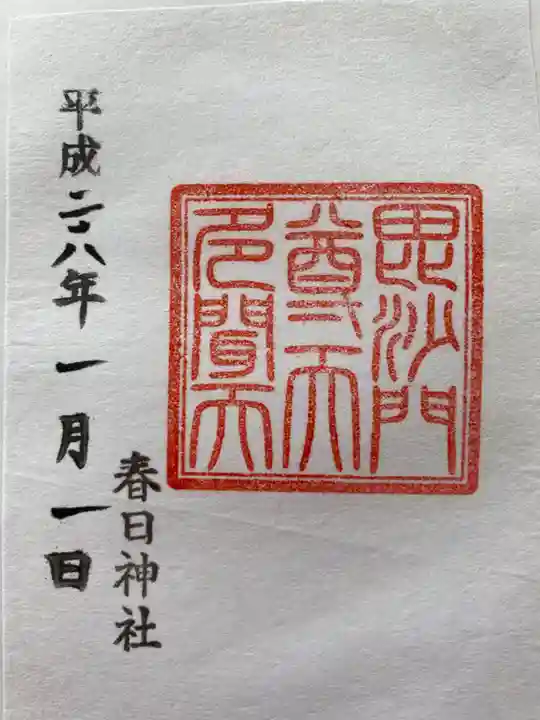 毘沙門
尊天
多聞天
春日神社
平成二八年一月一日